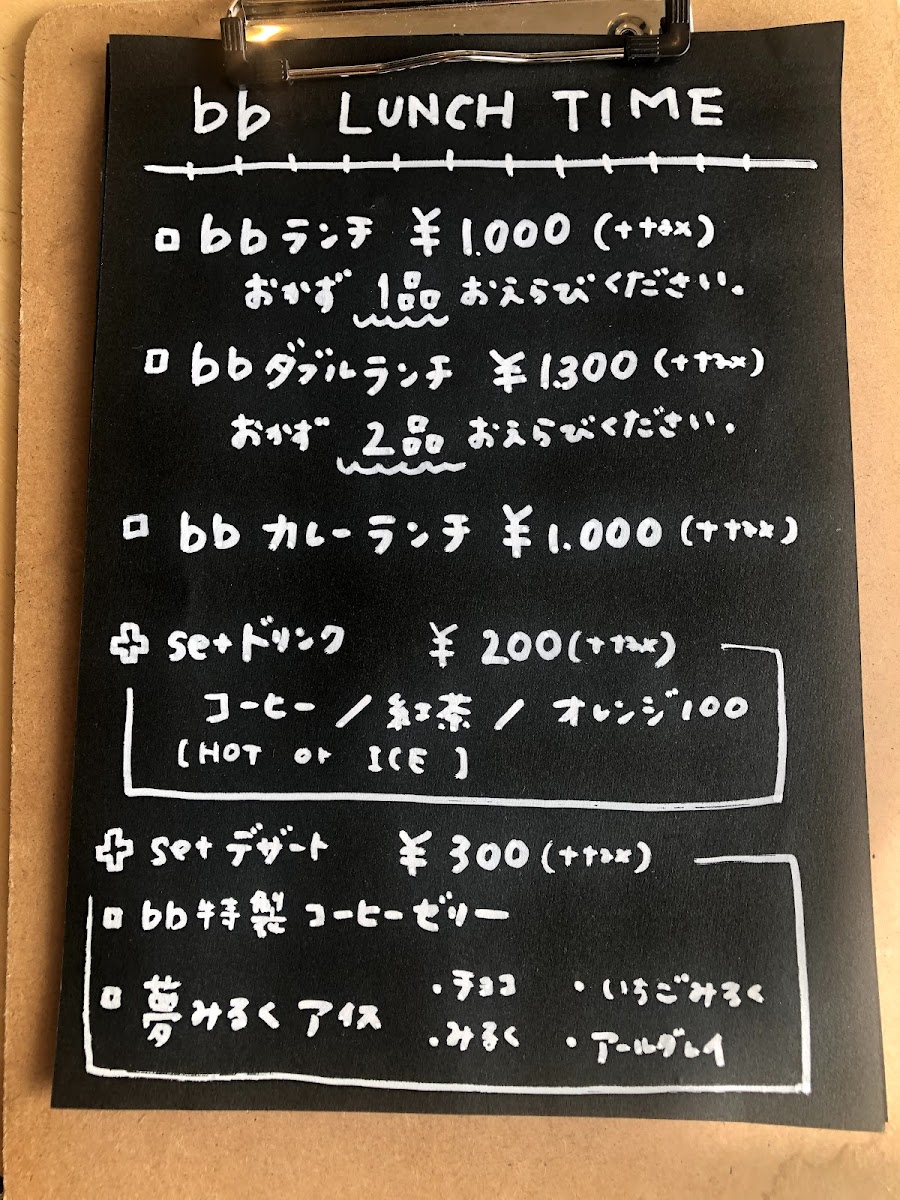 bb LUNCH TIME
bbランチ ¥1.000 (+tax)
おかず 1品 おえらびください。
bbダブルランチ ¥1.300 (+tax)
おかず 2品 おえらびください。
bb カレーランチ ¥1.000 (+tax)
set ドリンク ¥200 (+tax)
コーヒー / 紅茶 / オレンジ100
[HOT or ICE]
set デザート ¥300 (+tax)
bb特製 コーヒーゼリー
夢みるく アイス ・チョコ ・いちごみるく
・みるく ・アールグレイ